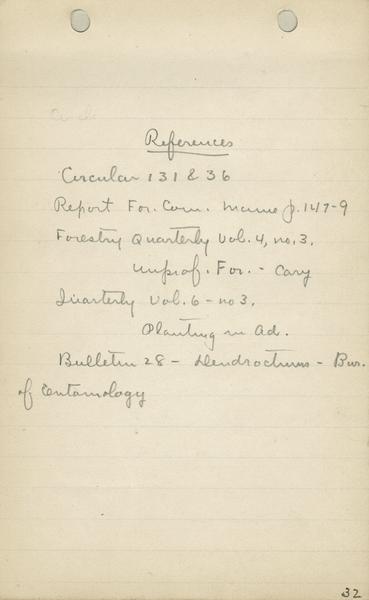 References
Circular 131 & 36
Report For. Com. Maine p. 147-9
Forestry Quarterly Vol. 4, no. 3.
Unprof. For. - Cary
Quarterly Vol. 6 - no 3.
Planting in Ad.
Bulletin 28 - Dendroctonus - Bur.
of Entomology
32